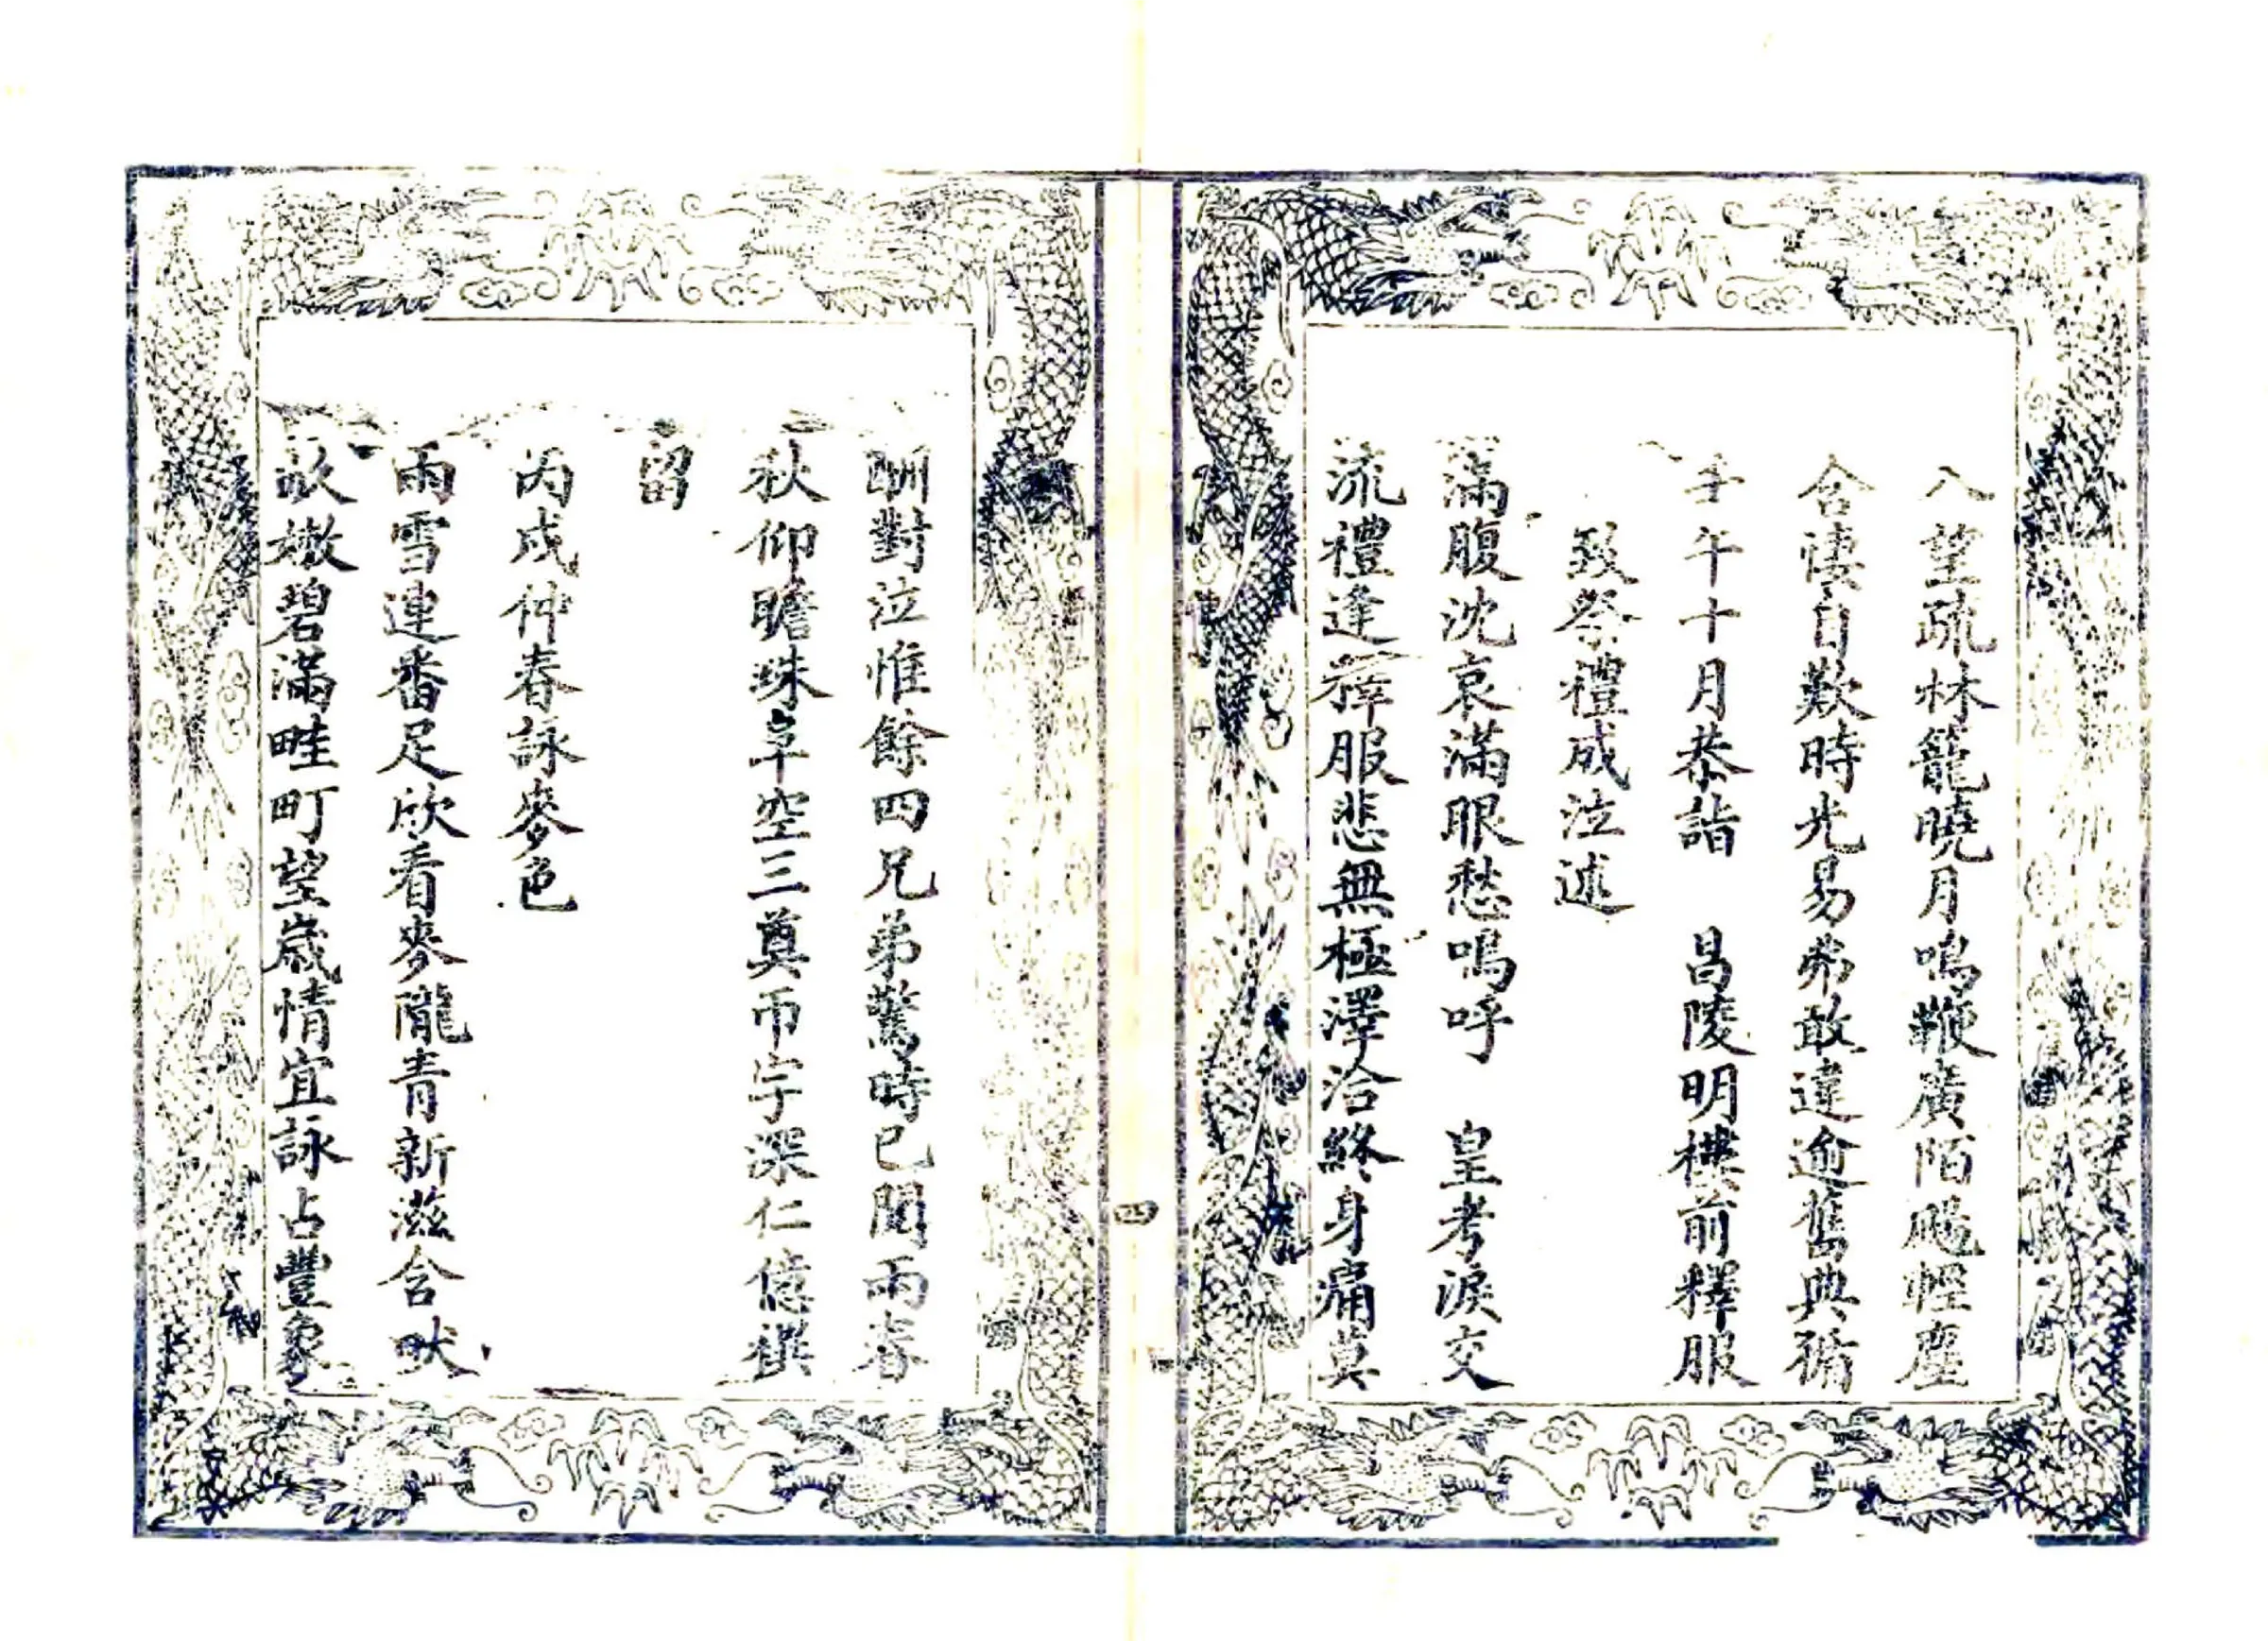 入望疏林籠曉月鳴鞭廣陌颺輕塵
含悽自歎時光易弗敢違逾舊典循
壬午十月恭詣　昌陵明樓前釋服
致祭禮成泣述
滿腹沈哀滿眼愁嗚呼　皇考淚交
流禮逢釋服悲無極澤洽終身痛莫
酬對泣惟餘四兄弟驚時已閱兩春
秋仰瞻珠阜空三奠帀宇深仁億禩
留
丙戌仲春詠麥色
雨雪連番足欣看麥隴青新滋含畎
畝嫩碧滿畦町望歲情宜詠占豐象
四